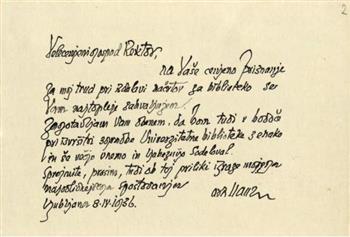 2
Velecenjeni gospod Rektor,
na Vaše cenjeno priznanje
za moj trud pri izdelavi načrtov za biblioteko se
Vam najtopleje zahvaljujem.
Zagotavljam Vam obenem, da bom tudi v bodoče
pri izvršitvi zgradbe Univerzitetne biblioteke z enako
in še večjo vnemo in ljubeznijo sodeloval.
Sprejmite, prosim, tudi ob tej priliki izraze mojega
najodličnejšega spoštovanja
Ljubljana 8.IV.1936.